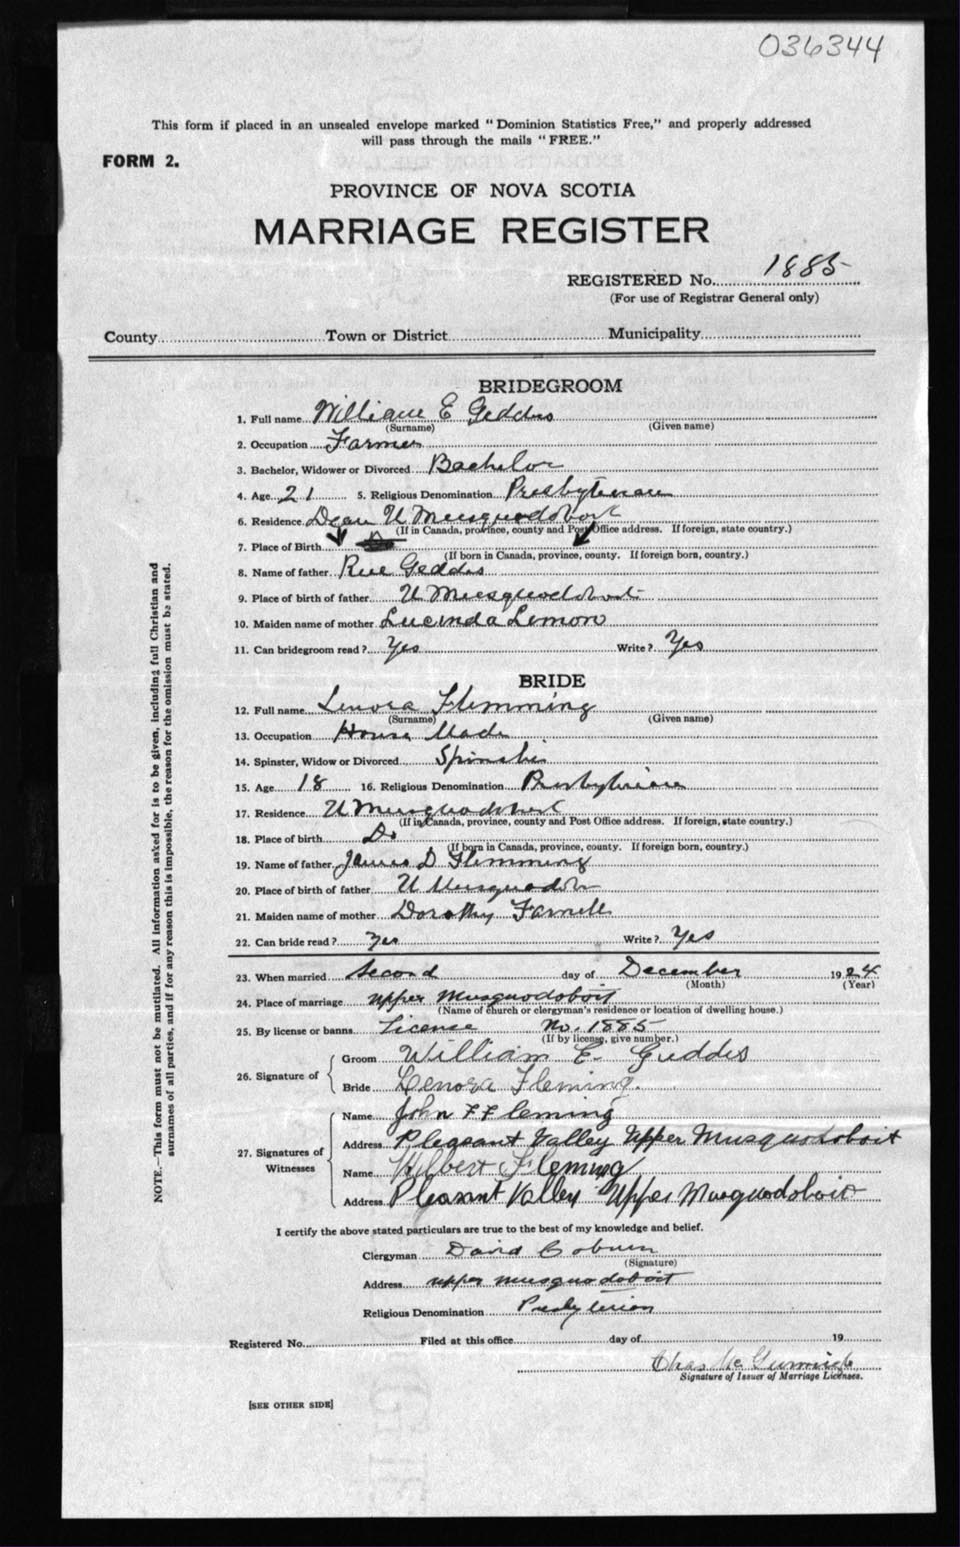 036344
This form if placed in an unsealed envelope marked "Dominion Statistics Free," and properly addressed
will pass through the mails "FREE."
FORM 2.
PROVINCE OF NOVA SCOTIA
MARRIAGE REGISTER
REGISTERED No. 1885
(For use of Registrar General only)
County Town or District Municipality
BRIDEGROOM
1. Full name William E Geddes
(Surname) (Given name)
2. Occupation Farmer
3. Bachelor, Widower or Divorced Bachelor
4. Age 21 5. Religious Denomination Presbyterian
6. Residence Dean U Musquodoboit
(If in Canada, province, county and Post Office address. If foreign, state country.)
7. Place of Birth
(If born in Canada, province, county. If foreign born, country.)
8. Name of father Geddes
9. Place of birth of father U Musquodoboit
10. Maiden name of mother Lucinda Lemon
11. Can bridegroom read? Yes Write? Yes
BRIDE
12. Full name Lenora Flemming
(Surname) (Given name)
13. Occupation House Made
14. Spinster, Widow or Divorced Spinster
15. Age 18 16. Religious Denomination Presbyterian
17. Residence U Musquodoboit
(If in Canada, province, county and Post Office address. If foreign, state country.)
18. Place of birth Do
(If born in Canada, province, county. If foreign born, country.)
19. Name of father James D Flemming
20. Place of birth of father U Musquodob
21. Maiden name of mother Dorothy Farnell
22. Can bride read? Yes Write? Yes
23. When married Second day of December 1924
(Month) (Year)
24. Place of marriage upper Musquodoboit
(Name of church or clergyman's residence or location of dwelling house.)
25. By license or banns License No. 1885
(If by license, give number.)
26. Signature of Groom William E. Geddes
Bride Lenora Fleming.
27. Signatures of Witnesses Name John F Fleming
Address Pleasant Valley Upper Musquodoboit
Name Wilbert Fleming
Address Pleasant Valley Upper Musquodoboit
I certify the above stated particulars are true to the best of my knowledge and belief.
Clergyman David Coburn
(Signature)
Address upper musquodoboit
Religious Denomination Presbyterian
Registered No. Filed at this office day of 19
Chas
Signature of Issuer of Marriage Licenses.
[SEE OTHER SIDE]
NOTE.—This form must not be mutilated. All information asked for is to be given, including full Christian and
surnames of all parties, and if for any reason this is impossible, the reason for the omission must be stated.